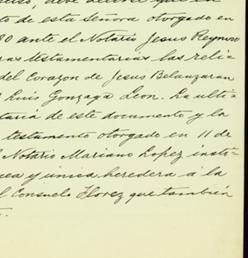 , debe decirse que en
to de esta Señora otorgado en
80 ante el Notario Jesus Reynoso
ras testamentarias las reli-
del Corazon de Jesus Belauzaran
Luis Gonzaga Leon. La ulti-
taria de este documento y la
testamento otorgado en 11 de
l Notario Mariano Lopez insti-
cea y unica heredera á la
l Consuelo Florez que tambien